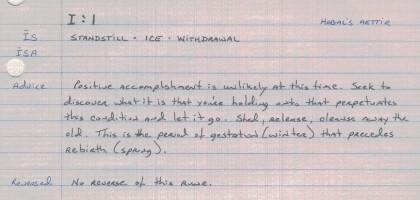 I:1 HAGAL'S AETTIR
ĪS STANDSTILL · ICE · WITHDRAWAL
ĪSA
Advice Positive accomplishment is unlikely at this time. Seek to
discover what it is that you're holding onto that perpetuates
this condition and let it go. Shed, release, cleanse away the
old. This is the period of gestation (winter) that precedes
rebirth (spring).
Reversed No reverse of this rune.